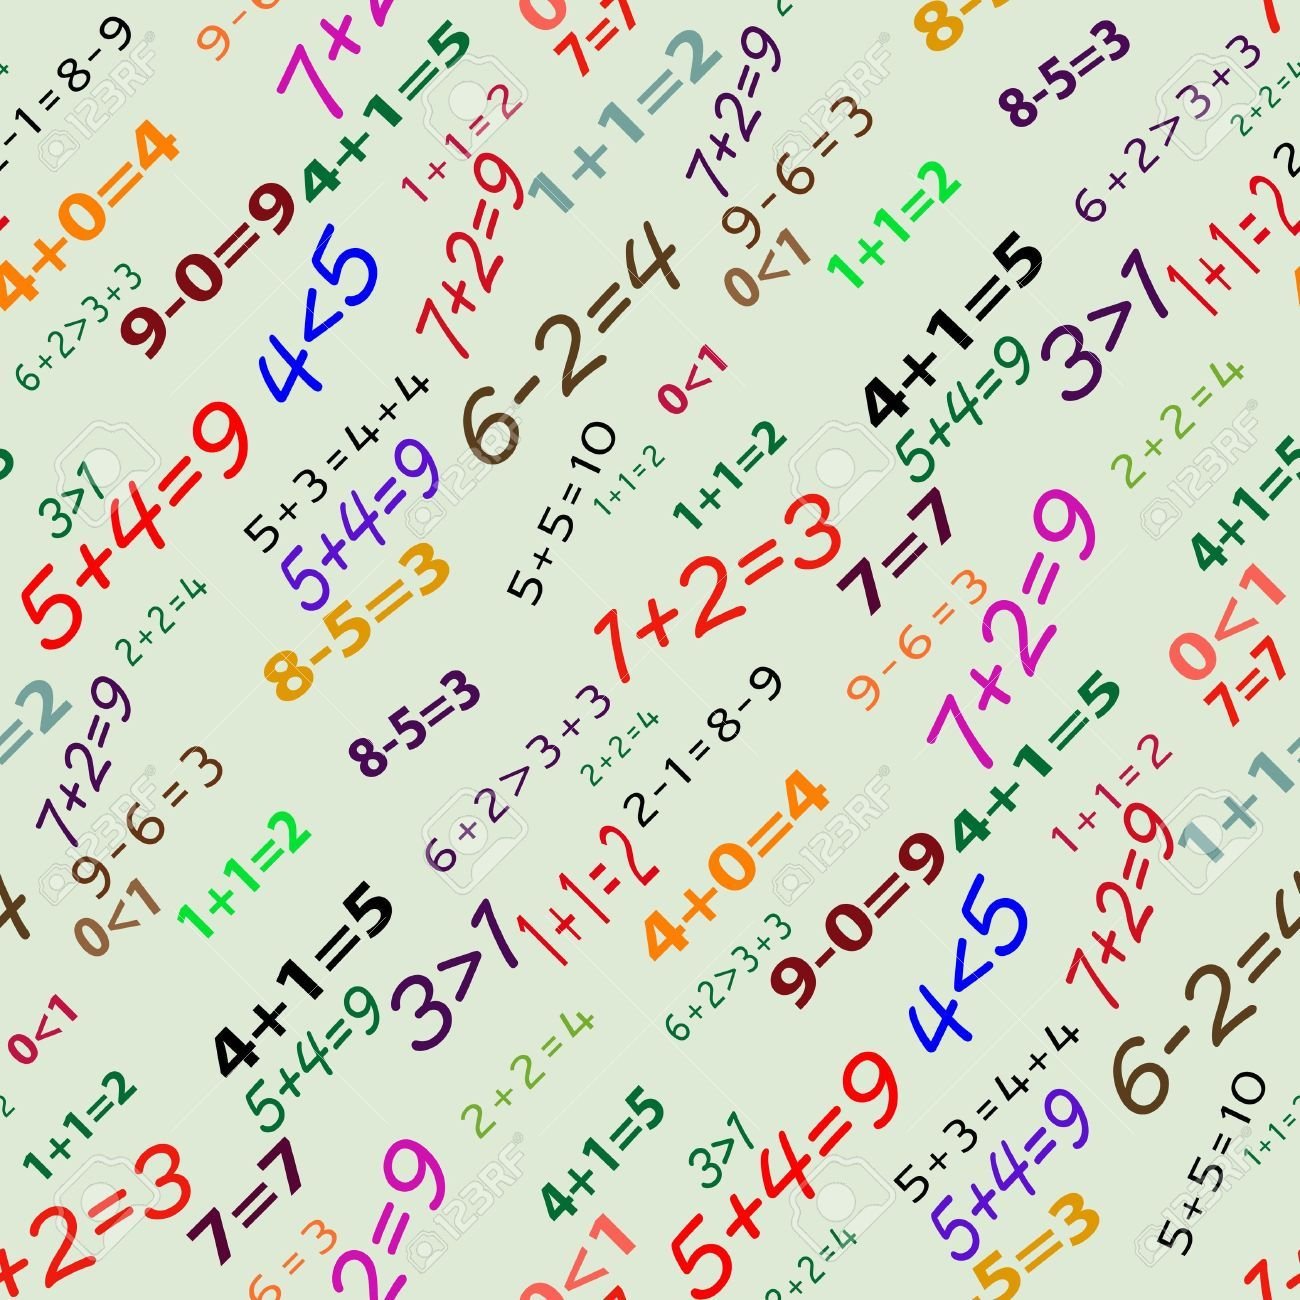 2-1=8-9
9-6
7+2
4+1=5
0
7=7
1+1=2
7+2=9
8-
8-5=3
6+2>3+3
2+2=4
4+0=4
9-0=9
1+1=2
7+2=9
9-6=3
0<1
1+1=2
1+1=2
6+2>3+3
4<5
6-2=4
4+1=5
3>7
5+4=9
0<1
2+2=4
5+4=9
3>7
5+3=4+4
5+4=9
5+5=10
1+1=2
1+1=2
7=7
4+1=5
7+2=9
2+2=4
8-5=3
7+2=3
9-6=3
0<1
7=7
=2
7+2=9
8-5=3
6+2>3+3
2+2=4
2-1=8-9
4+1=5
1+1=2
1+1=
9-6=3
0<1
1+1=2
1+1=2
4+0=4
9-0=9
7+2=9
4
4+1=5
3>7
6+2>3+3
4<5
6-2=4
0<1
5+4=9
2+2=4
5+4=9
5+3=4+4
5+5=10
1+1=2
1+1=2
4+1=5
3>7
5+4=9
+2=3
7=7
2=9
6=3
0<1
2+2=4
5=3
123RF